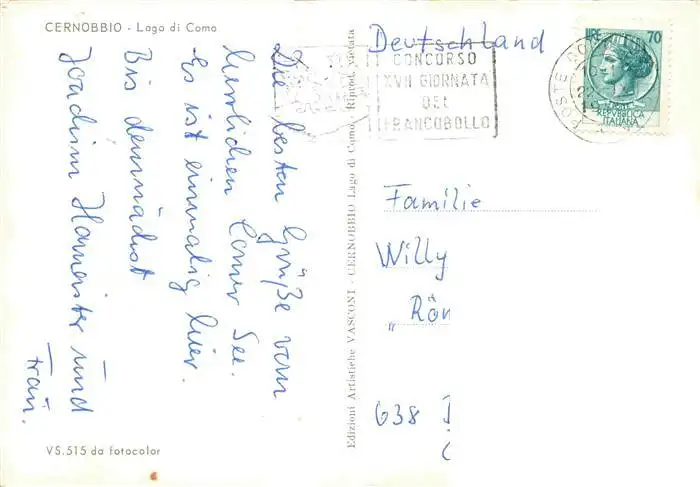 CERNOBBIO - Lago di Como
Die besten Grüße vom
herrlichen Comer See.
Es ist einmalig hier.
Bis demnächst
Joachim Hameister und
Frau.
VS.515 da fotocolor
Edizioni Artistiche VASCONI - CERNOBBIO Lago di Como - Riprod. vietata
Deutschland
CONCORSO
XVII GIORNATA
DEL
FRANCOBOLLO
POSTE
LIRE 70
POSTE
REPVBBLICA
ITALIANA
Familie
Willy
„Rön
638